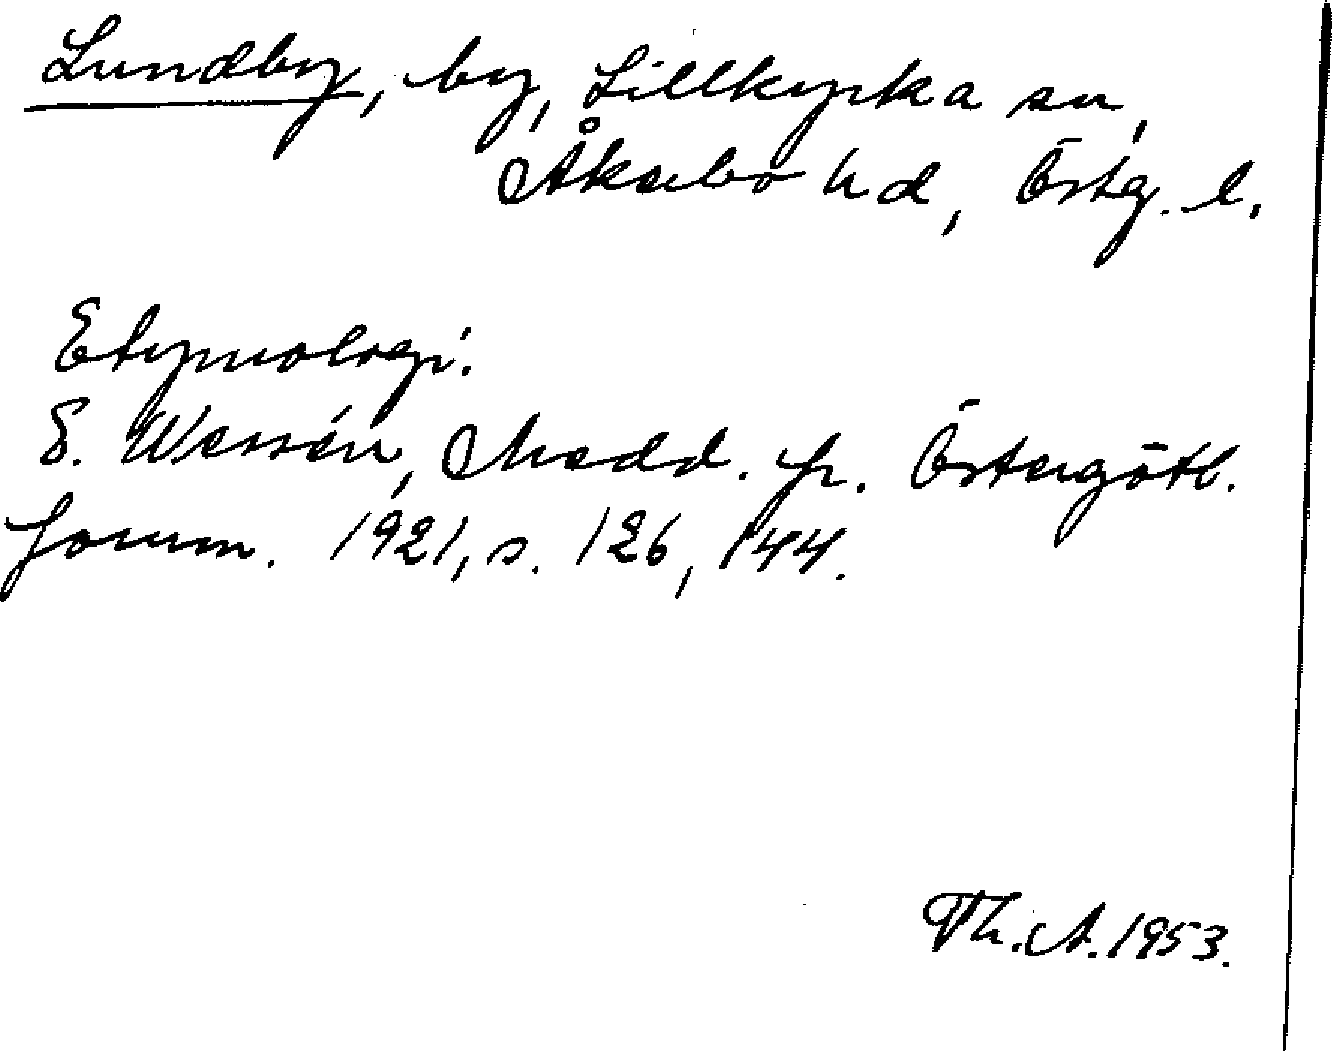 Lundby, by, Lillkyrka sn,
Åkerbo hd, Östg. l.
Etymologi.
E. Wessén, Medd. fr. Östergötl.
fornm. 1921, s. 126, 144.
Th. A. 1953.